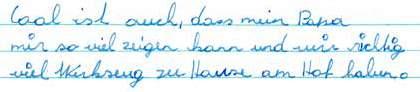 Cool ist auch, dass mein Papa
mir so viel zeigen kann und wir richtig
viel Werkzeug zu Hause am Hof haben.